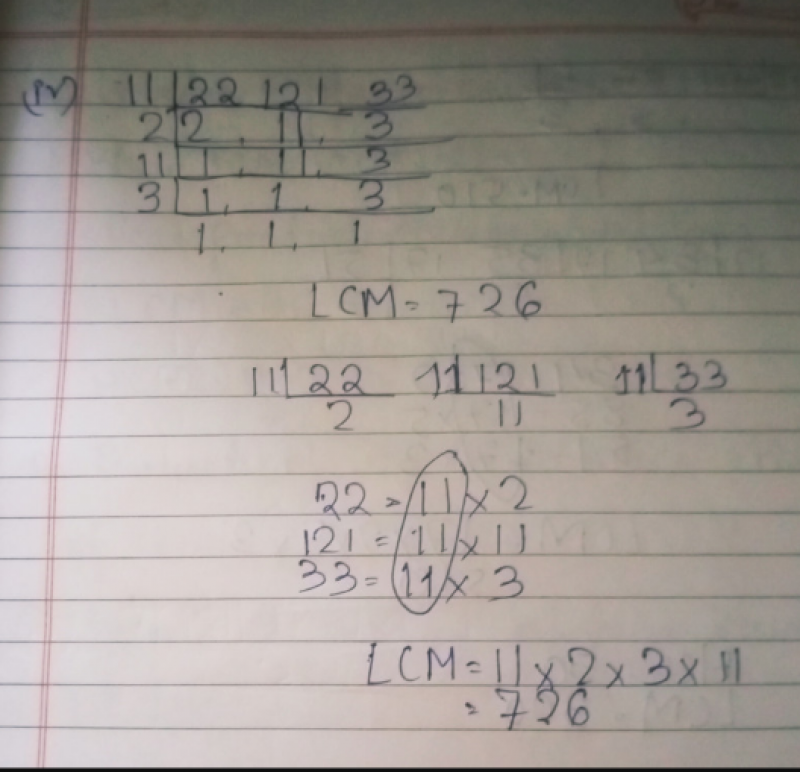 11 | 22 121 33
2 | 2, 11, 3
11 | 1, 11, 3
3 | 1, 1, 3
1, 1, 1
LCM = 726
11 | 22 11 | 121 11 | 33
2 11 3
22 = 11 x 2
121 = 11 x 11
33 = 11 x 3
LCM = 11 x 2 x 3 x 11
= 726